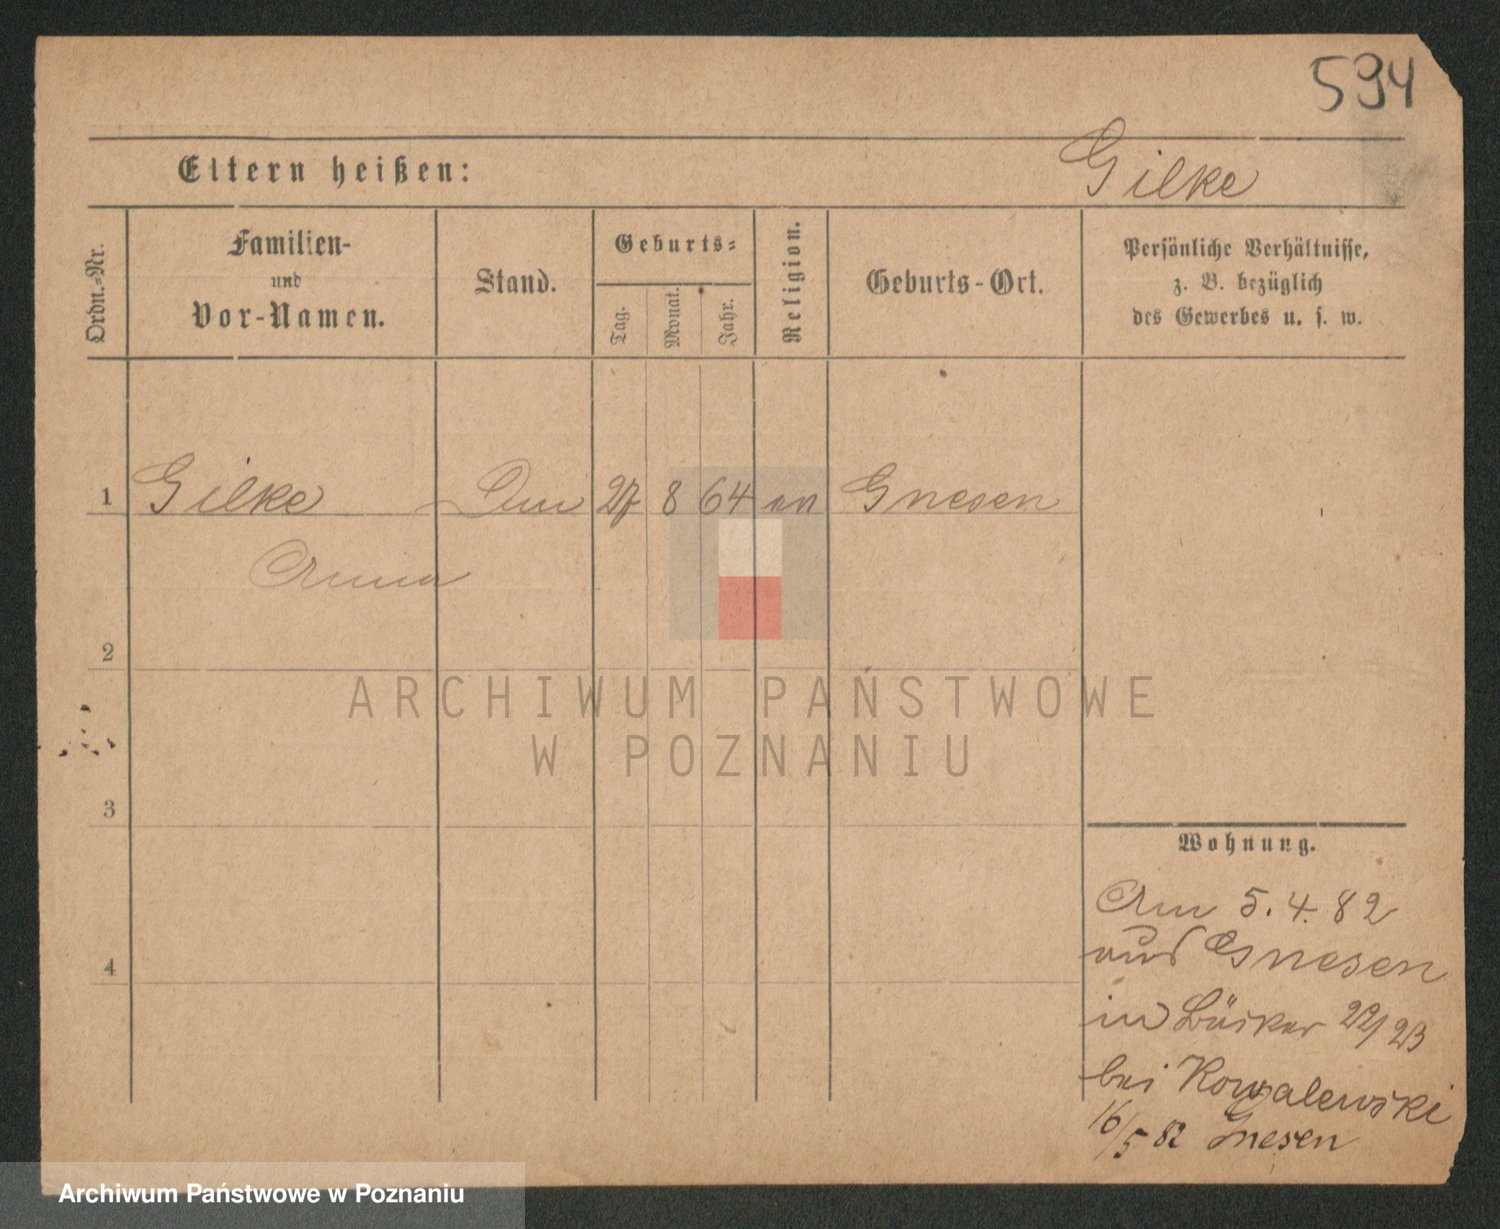 594
Eltern heißen:
Gilke
Ordn.-Nr.
Familien-
und
Vor-Namen.
Stand.
Geburts-
Tag.
Monat.
Jahr.
Religion.
Geburts-Ort.
Persönliche Verhältnisse,
z. B. bezüglich
des Gewerbes u. s. w.
1 Gilke 27 8 64 Gnesen
Anna
2
3
4
ARCHIWUM PAŃSTWOWE
W POZNANIU
Wohnung.
Am 5.4.82
aus Gnesen
in 22/23
bei Kowalewski
16/5 82 Gnesen
Archiwum Państwowe w Poznaniu